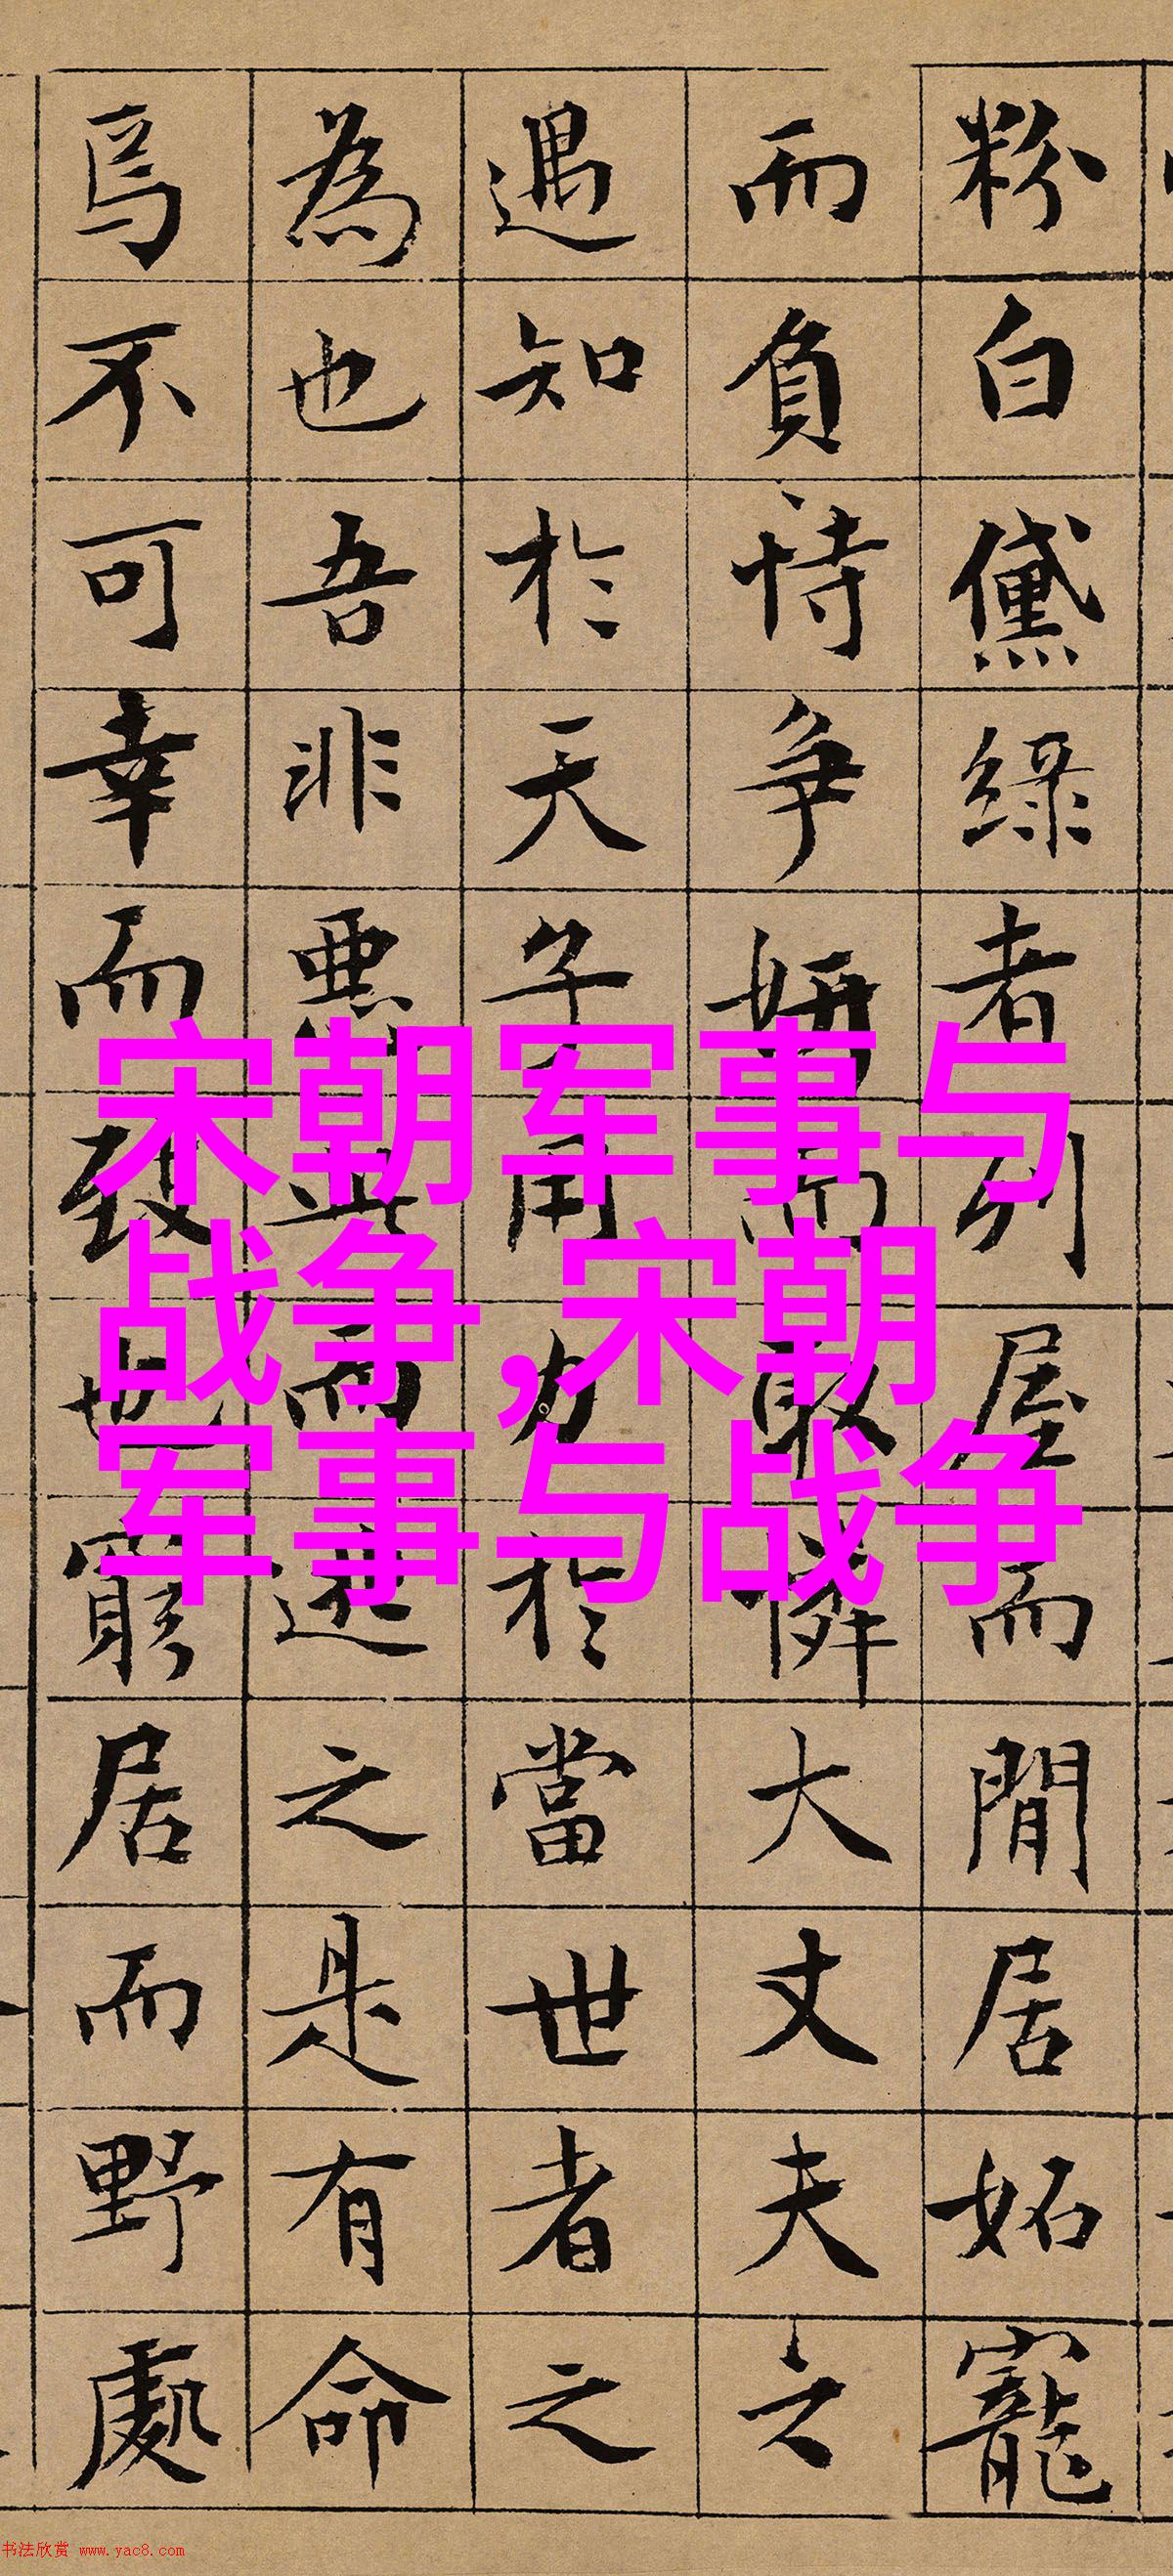 粉白黛綠者列屋而閒居妬寵
而負恃争妍而取憐大丈夫之
遇知於天子用力於當世者之
為也吾非惡此而逃之是有命
焉不可幸而致也窮居而野處
宋朝军事与
战争,宋朝
军事与战争
书法欣赏 www.yac8.com